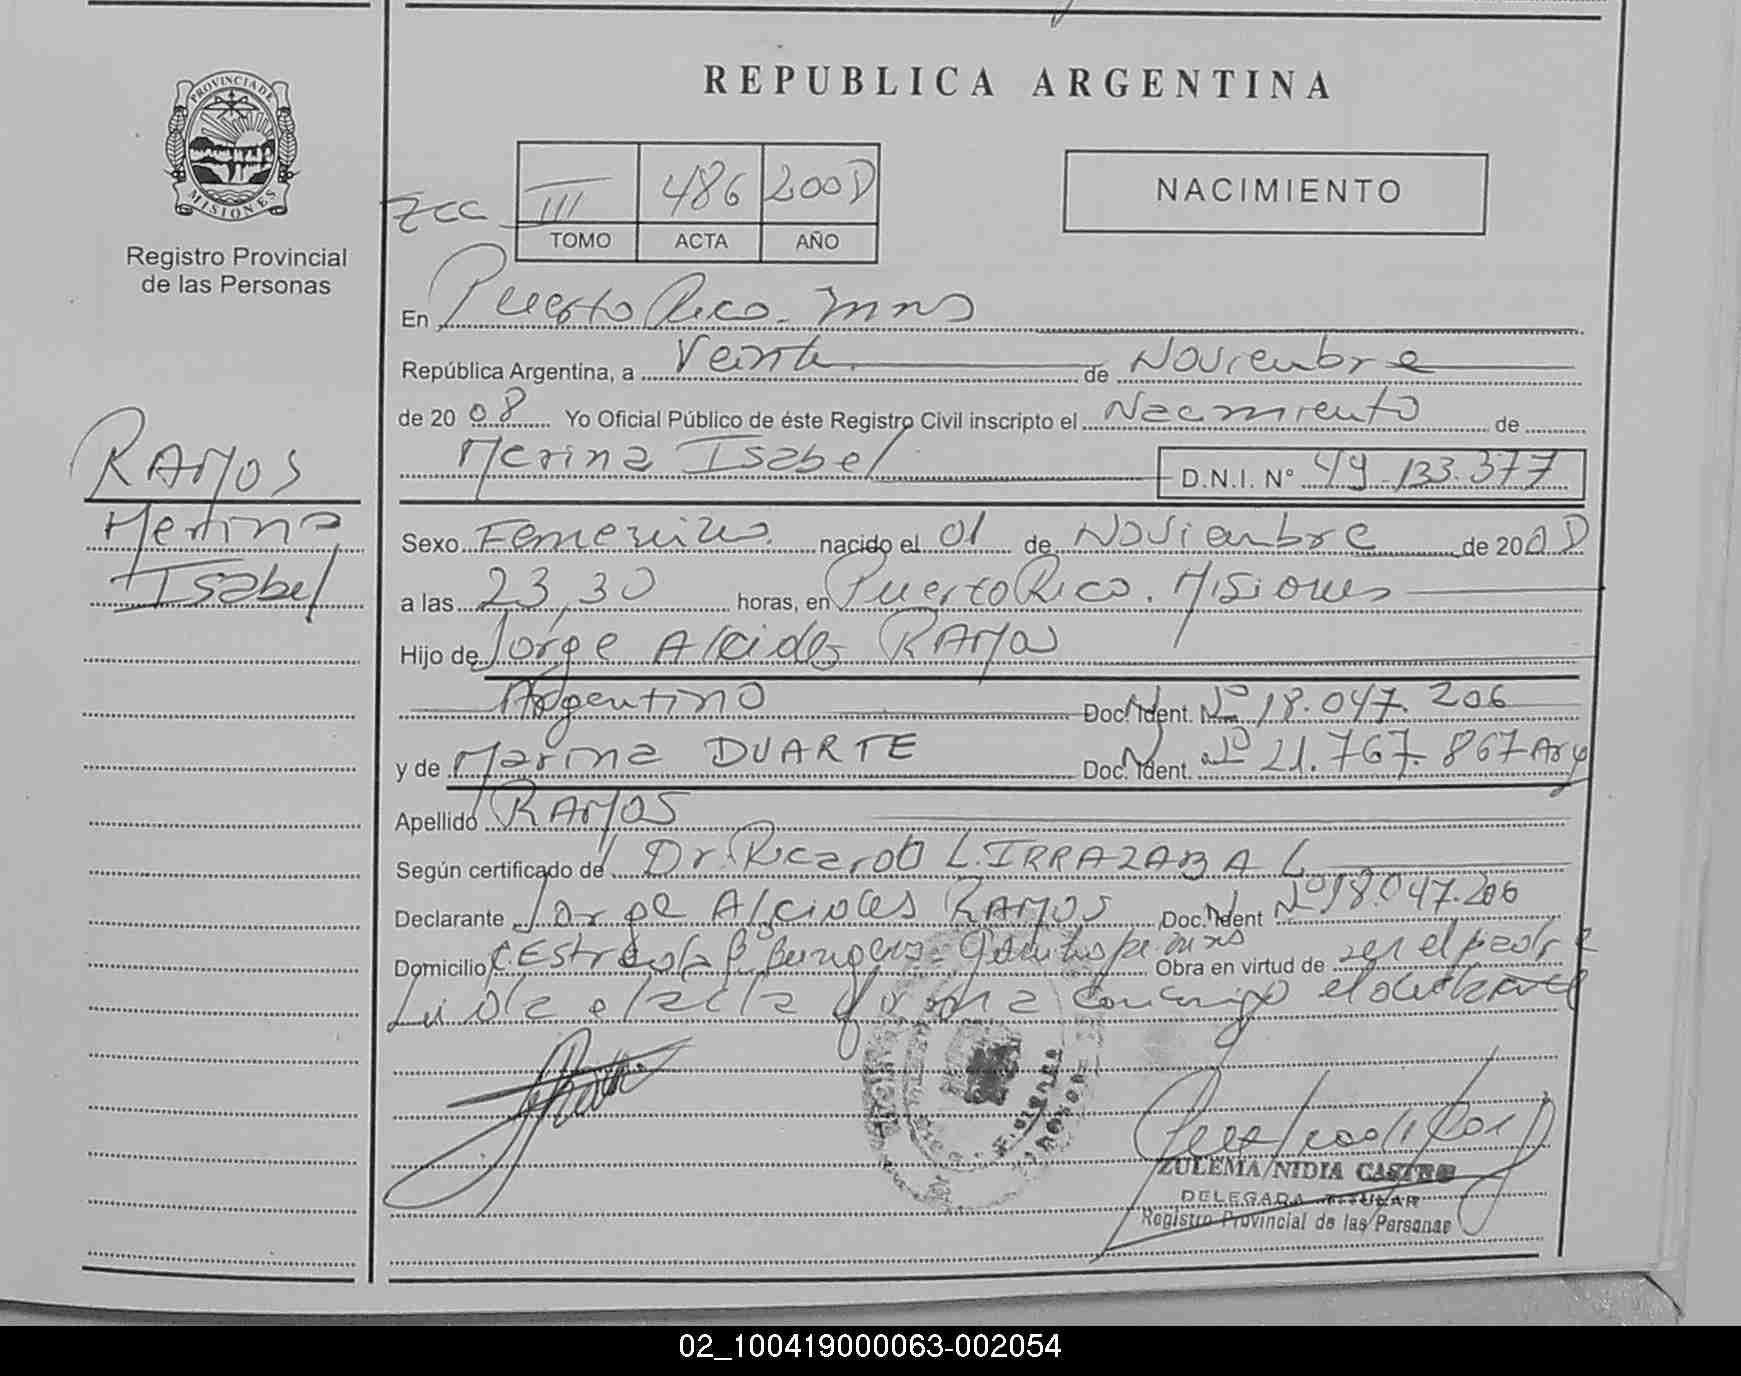 REPUBLICA ARGENTINA
PROVINCIA DE
MISIONES
Registro Provincial
de las Personas
III 486 2008
TOMO ACTA AÑO
NACIMIENTO
En Puerto Rico. Mns
República Argentina, a Veinte de Noviembre
de 20 08 Yo Oficial Público de éste Registro Civil inscripto el Nacimiento de
Marina Isabel D.N.I. Nº 49.133.377
RAMOS
Marina
Isabel
Sexo Femenino nacido el 01 de Noviembre de 2008
a las 23,30 horas, en Puerto Rico. Misiones
Hijo de Jorge Alcides RAMOS
Argentino Doc. Ident. Nº 18.047.206
y de Marina DUARTE Doc. Ident. Nº 21.767.867 Arg
Apellido RAMOS
Según certificado de Dr. Ricardo L. IRRAZABAL
Declarante Jorge Alcides RAMOS Doc. Ident Nº 18.047.206
Domicilio Obra en virtud de ser el padre
Leida el acta firma conmigo el declarante
ZULEMA NIDIA CASTRO
DELEGADA TITULAR
Registro Provincial de las Personas
02_100419000063-002054